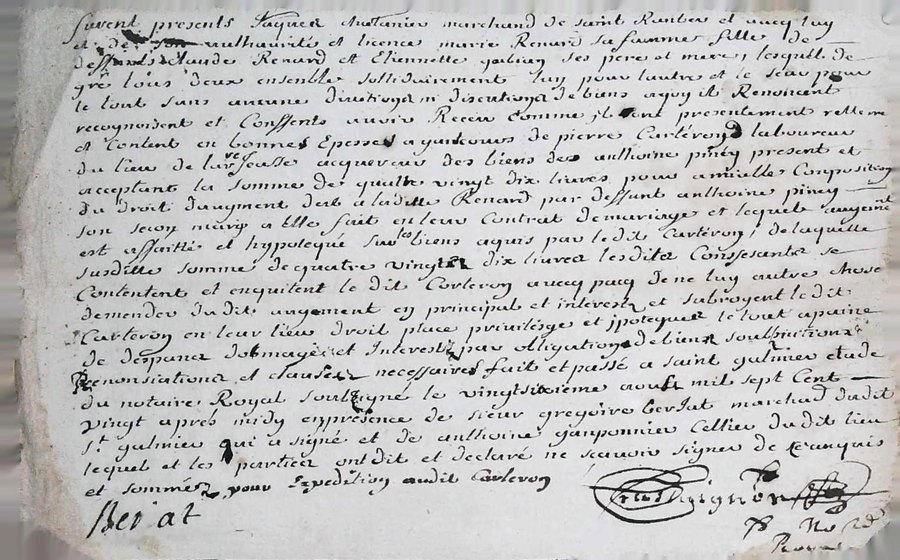 furent presents Jaques marchand de saint Rambert et avecq luy
et de son authaurité et licence marie Renard sa famme fille de
deffunts claude Renard et Etiennette gubian ses pere et mere, lesquels de
gré tous deux ensemble sollidairement l'un pour l'autre et le seul pour
le tout sans aucune divitiona ni discutiona de biens a quoy ils Renoncent
recognoissent et Conffents avoir Receu comme ils ont presentement
et Content en bonnes Epesses ayant cours de pierre Carteron laboureur
du lieu de la acquereur des biens de anthoine piney present et
acceptant la somme de quatre vingt dix livres pour amiable Composition
du droit d'augment deub a laditte Renard par deffunt anthoine piney
son secon mary a Elle fait en leur Contrat de mariage et lequel augment
est affaitté et hypotequé sur les biens aquis par le dit Carteron, de laquelle
susditte somme de quatre vingtz dix livres lesdits Conffesants se
Contentent et enquitent le dit Carteron avecq pacq de ne luy autre chose
demender dudit augement en principal et interestz et subrogent le dit
Carteron en leur lieu droit place privilésge et jpoteques le tout a paine
de despans domages et Interestz par obligationa de biens soubmitions
Renonsiationa et clauses necessaires fait et passé a saint galmier etude
du notaire Royal soubsigné le vingtsixieme aoust mil sept Cent
vingt aprés midy en presence de sieur gregoire berjat marchad dudit
St galmier qui a signé et de anthoine ganponnier Cellier dudit lieu
lequel et les parties ont dit et declaré ne scavoir signer de ce anquis
et sommés pour Expedition audit Carteron
Berjat
No re
Royal